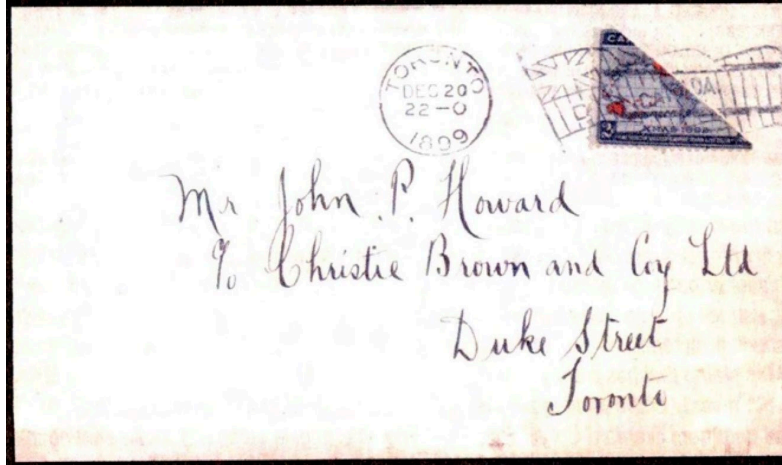 TORONTO
DEC 20
22-0
1899
CANADA
2
XMAS 1898
Mr John P. Howard
c/o Christie Brown and Coy Ltd
Duke Street
Toronto